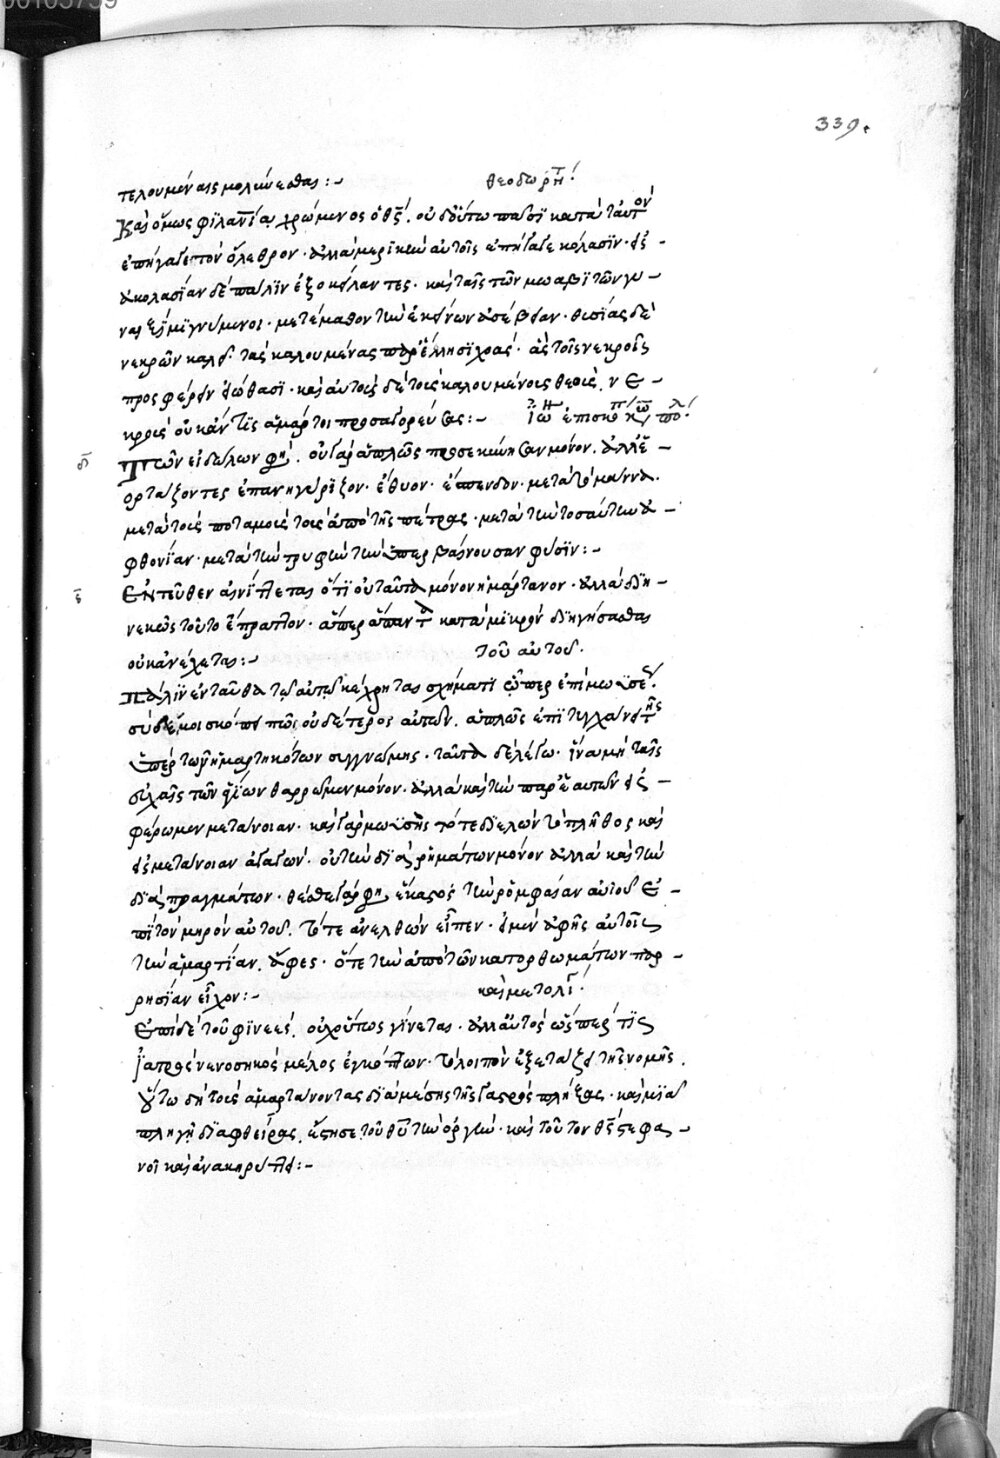 00105759
339.
τελουμέναις μολύνεσθαι :–
θεοδωρήτ
Καὶ ὅμως φιλανίᾳ χρώμενος ὁ θς̅. οὐδ' οὕτω πᾶσι κατὰ ταυτὸν
ἐπήγαγε τὸν ὄλεθρον. ἀλλὰ μερικὴν αὐτοῖς ἐπήγαγε κόλασιν. εἰς –
ἀκολασίαν δὲ πάλιν ἐξοκείλαντες. καὶ ταῖς τῶν μωαβιτῶν γυ –
ναιξὶ μιγνύμενοι. μετέμαθον τὴν ἐκείνων ἀσέβειαν. θυσίας δὲ
νεκρῶν καλεῖ. τὰς καλουμένας παρ' ἕλλησι χοάς. ἃς τοῖς νεκροῖς
προσφέρειν εἰώθασι. καὶ αὐτοὺς δὲ τοὺς καλουμένους θεοὺς. νε –
κροὺς οὐκ ἄν τις ἁμάρτοι προσαγορεύσας :–
ἰω ἐπισκό κω πό
Τῶν εἰδώλων φη. οὐ γὰρ ἁπλῶς προσεκύνησαν μόνον. ἀλλ' ἑ –
ορτάζοντες ἐπανηγύριζον. ἔθυον. ἔσπενδον. μετὰ τὸ μάννα.
μετὰ τοὺς ποταμοὺς τοὺς ἀπὸ τῆς πέτρας. μετὰ τὴν τοσαύτην ἀ –
φθονίαν. μετὰ τὴν τρυφὴν τὴν ὑπερβαίνουσαν φύσιν :–
Ἐντεῦθεν αἰνίττεται ὅτι οὐ ταῦτα μόνον ἡμάρτανον. ἀλλὰ διη –
νεκῶς τοῦτο ἔπραττον. ἅπερ ἅπαντα κατὰ μικρὸν διηγήσασθαι
οὐκ ἀνέχεται :–
τοῦ αὐτοῦ.
Πάλιν ἐνταῦθα τῷ αὐτῷ κέχρηται σχήματι ᾧπερ ἐπὶ μωϋσέως.
σὺ δέ μοι σκόπει πῶς οὐδέτερος αὐτῶν. ἁπλῶς ἐπιτυγχάνει τῆς
ὑπὲρ τῶν ἡμαρτηκότων συγγνώμης. ταῦτα δὲ λέγω. ἵνα μὴ ταῖς
εὐχαῖς τῶν ἁγίων θαρρῶμεν μόνον. ἀλλὰ καὶ τὴν παρ' ἑαυτῶν εἰς –
φέρωμεν μετάνοιαν. καὶ γὰρ μωϋσῆς τότε διελὼν τὸ πλῆθος καὶ
εἰς μετάνοιαν ἀγαγών. οὐ τὴν διὰ ῥημάτων μόνον ἀλλὰ καὶ τὴν
διὰ πραγμάτων. θέσθε γάρ φη, ἕκαστος τὴν ῥομφαίαν αὐτοῦ ἐ –
πὶ τὸν μηρὸν αὐτοῦ. τότε ἀνελθὼν εἶπεν. εἰ μὲν ἀφῇς αὐτοῖς
τὴν ἁμαρτίαν, ἄφες. ὅτε τὴν ἀπὸ τῶν κατορθωμάτων παρ –
ρησίαν εἶχον :–
καὶ μετ' ὀλί
Ἐπὶ δὲ τοῦ φινεές, οὐχ οὕτως γίνεται. ἀλλ' αὐτὸς ὥσπερ τὶς
ἰατρὸς νενοσηκὸς μέλος ἐγκόπτων. τὸ λοιπὸν ἐξετάζει τῆς νομῆς.
οὕτω δὴ τοὺς ἁμαρτάνοντας διὰ μέσης τῆς γαστρὸς πλήξας. καὶ μιᾷ
πληγῇ διαφθείρας, ἔστησε τοῦ θυ̅ τὴν ὀργήν. καὶ τοῦτον θς̅ στεφα –
νοῖ καὶ ἀνακηρύττει :–